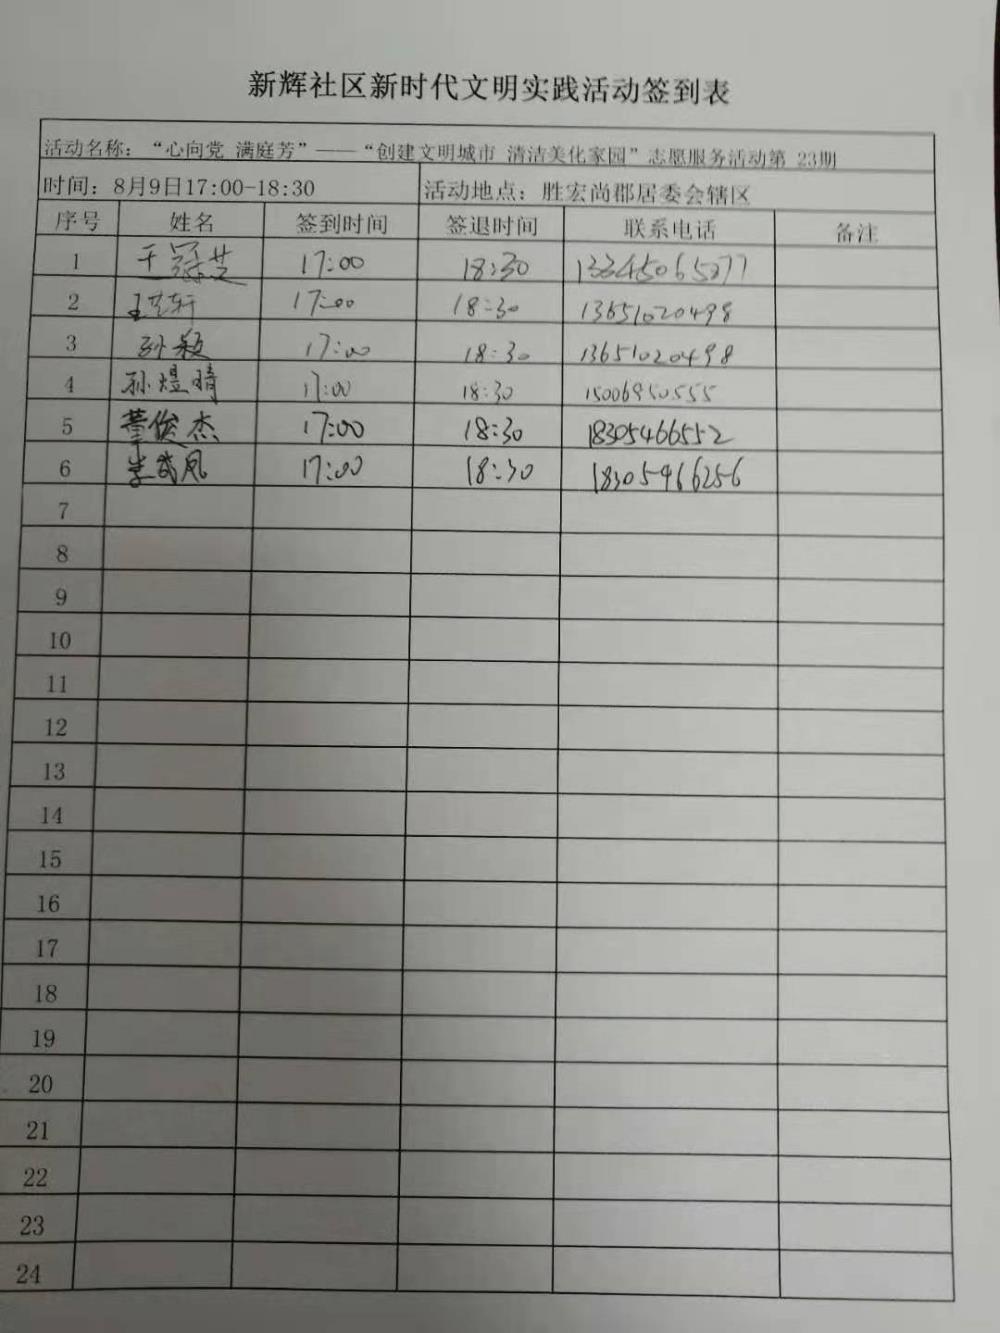 新辉社区新时代文明实践活动签到表
活动名称：“心向党 满庭芳”——“创建文明城市 清洁美化家园”志愿服务活动第 23期
时间：8月9日17:00-18:30 活动地点：胜宏尚郡居委会辖区
序号 姓名 签到时间 签退时间 联系电话 备注
1 王冠芸 17:00 18:30 13345065077
2 17:00 18:30 13651020498
3 孙颖 17:00 18:30 13651020498
4 孙煜晴 17:00 18:30 15006950555
5 董俊杰 17:00 18:30 18305466552
6 17:00 18:30 18305466256
7
8
9
10
11
12
13
14
15
16
17
18
19
20
21
22
23
24